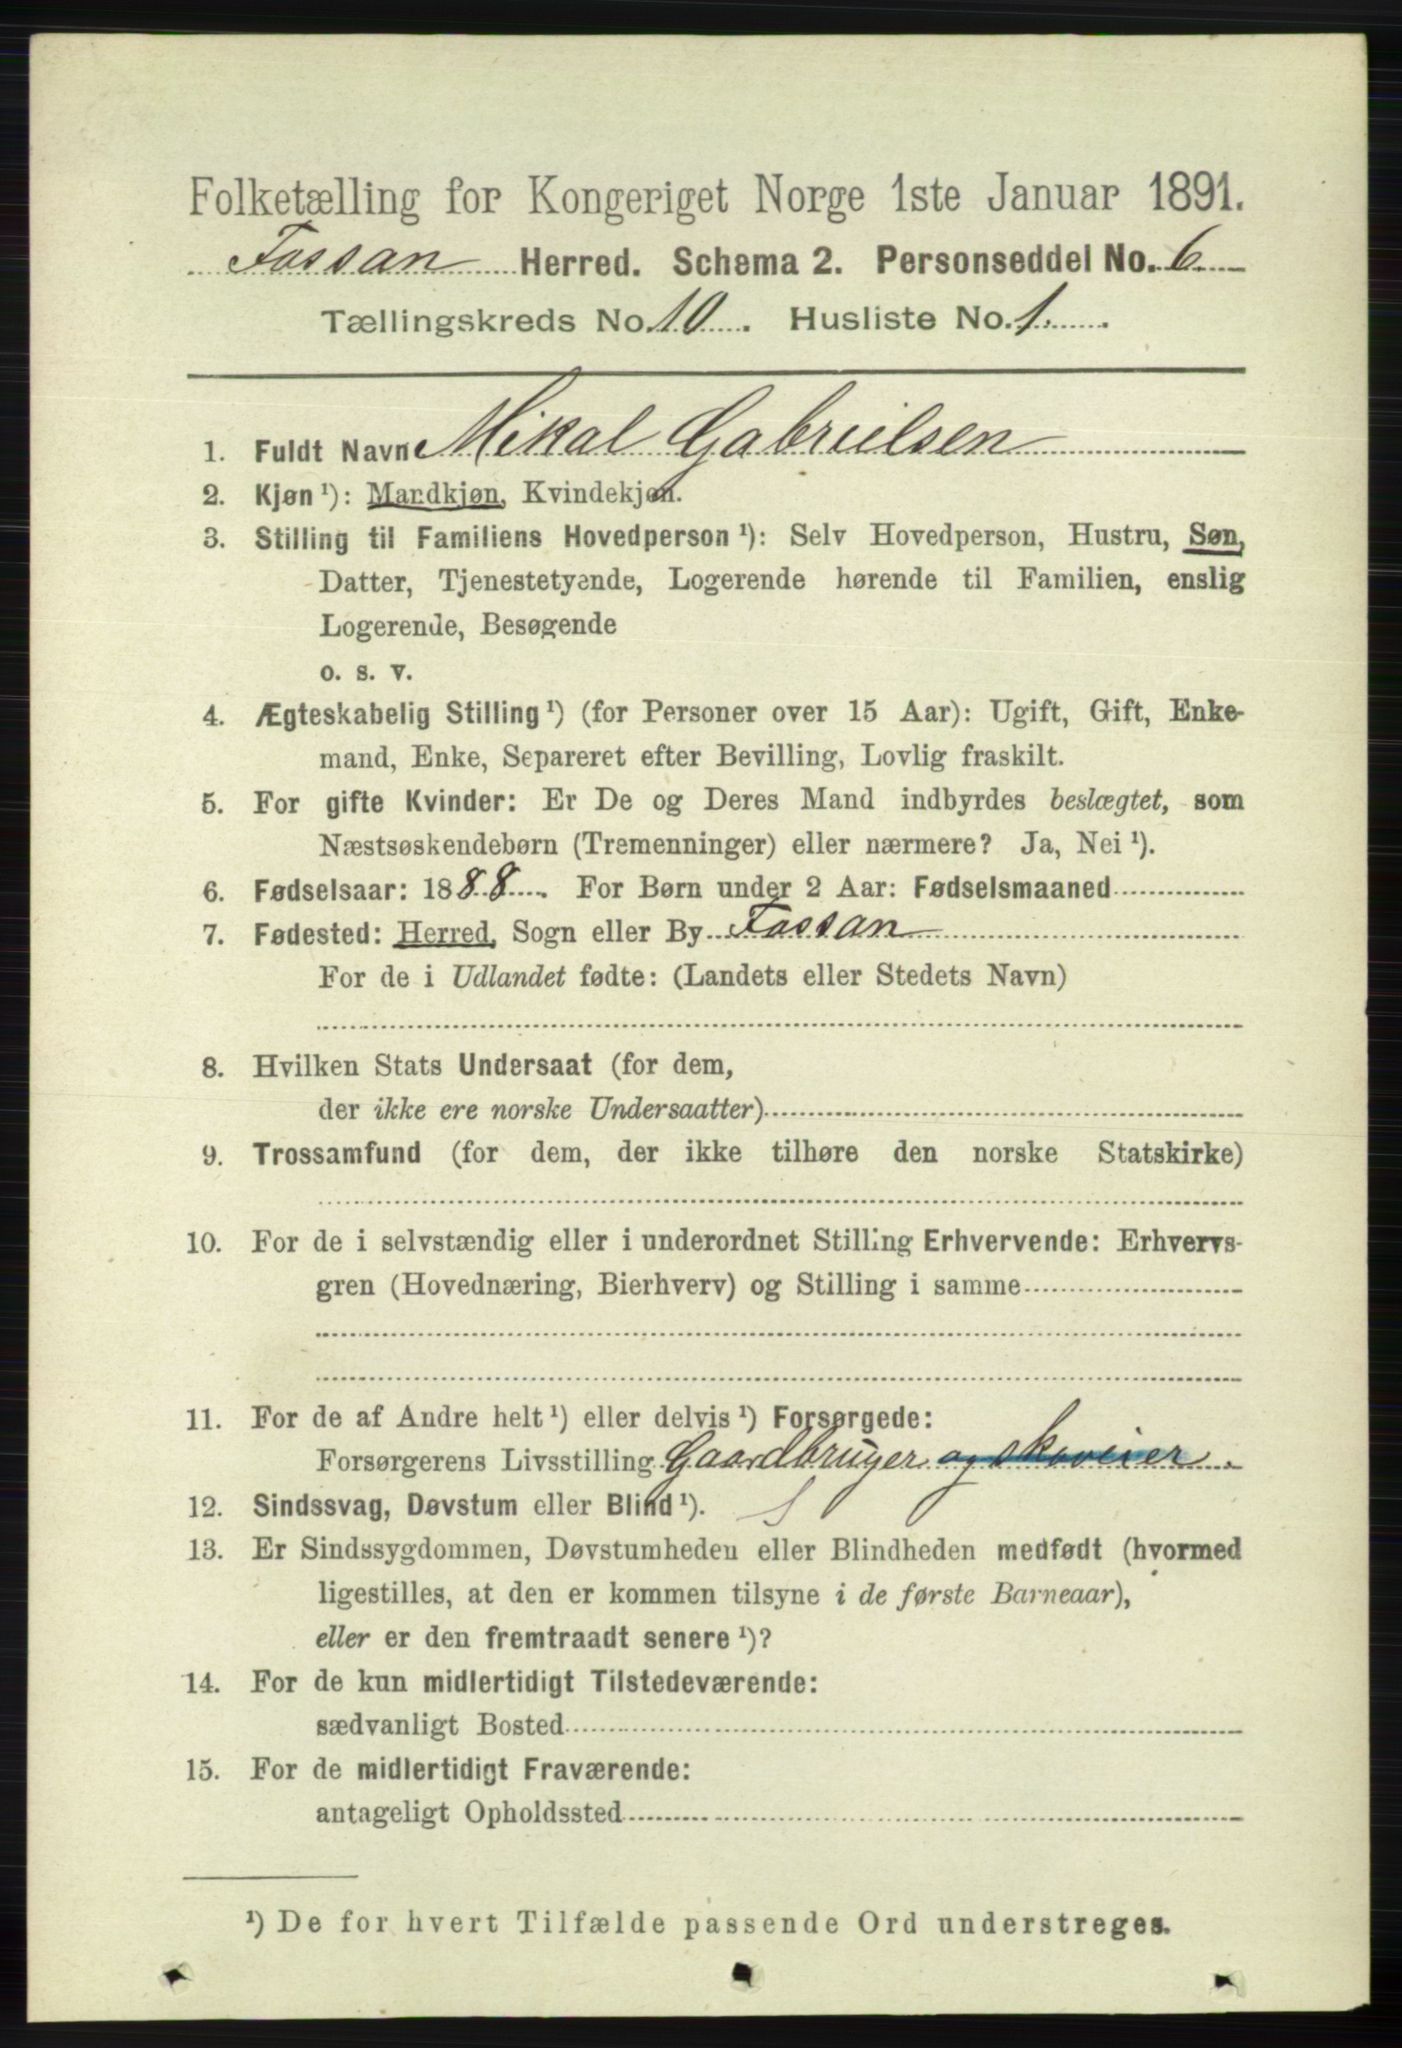 Folketælling for Kongeriget Norge 1ste Januar 1891.
Fossan Herred. Schema 2. Personseddel No. 6.
Tællingskreds No. 10. Husliste No. 1.
1. Fuldt Navn Mikal Gabrielsen
2. Kjøn ¹): Mandkjøn, Kvindekjøn.
3. Stilling til Familiens Hovedperson ¹): Selv Hovedperson, Hustru, Søn,
Datter, Tjenestetyende, Logerende hørende til Familien, enslig
Logerende, Besøgende
o. s. v.
4. Ægteskabelig Stilling ¹) (for Personer over 15 Aar): Ugift, Gift, Enke-
mand, Enke, Separeret efter Bevilling, Lovlig fraskilt.
5. For gifte Kvinder: Er De og Deres Mand indbyrdes beslægtet, som
Næstsøskendebørn (Tremenninger) eller nærmere? Ja, Nei ¹).
6. Fødselsaar: 1888. For Børn under 2 Aar: Fødselsmaaned
7. Fødested: Herred, Sogn eller By Fossan
For de i Udlandet fødte: (Landets eller Stedets Navn)
8. Hvilken Stats Undersaat (for dem,
der ikke ere norske Undersaatter)
9. Trossamfund (for dem, der ikke tilhøre den norske Statskirke)
10. For de i selvstændig eller i underordnet Stilling Erhvervende: Erhvervs-
gren (Hovednæring, Bierhverv) og Stilling i samme
11. For de af Andre helt ¹) eller delvis ¹) Forsørgede:
Forsørgerens Livsstilling Gaardbruger og skoveier.
12. Sindssvag, Døvstum eller Blind ¹). S
13. Er Sindssygdommen, Døvstumheden eller Blindheden medfødt (hvormed
ligestilles, at den er kommen tilsyne i de første Barneaar),
eller er den fremtraadt senere ¹)?
14. For de kun midlertidigt Tilstedeværende:
sædvanligt Bosted
15. For de midlertidigt Fraværende:
antageligt Opholdssted
¹) De for hvert Tilfælde passende Ord understreges.